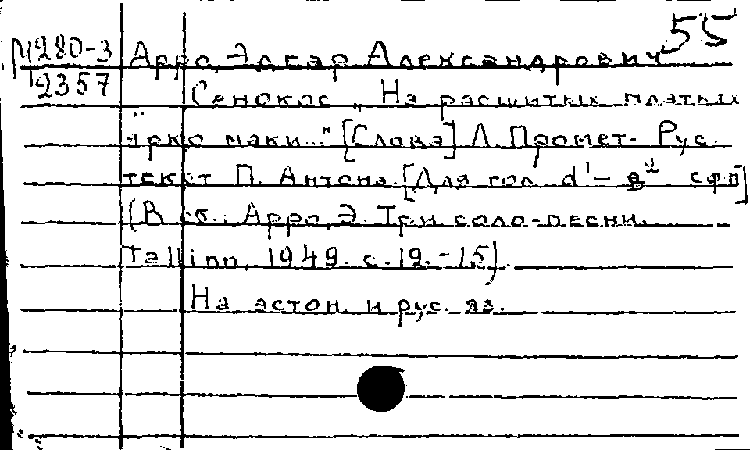 55
М280-3 Арро, Эдгар Александрович
2357 Сенокос „На расшитых платках
ярко маки..." [Слова] Л. Промет. Рус.
текст П. Антона. [Для гол. d¹- g² с ф-п]
(В сб.: Арро, Э. Три соло-песни.
Tallinn, 1949. с. 12.-15).
На эстон. и рус. яз.